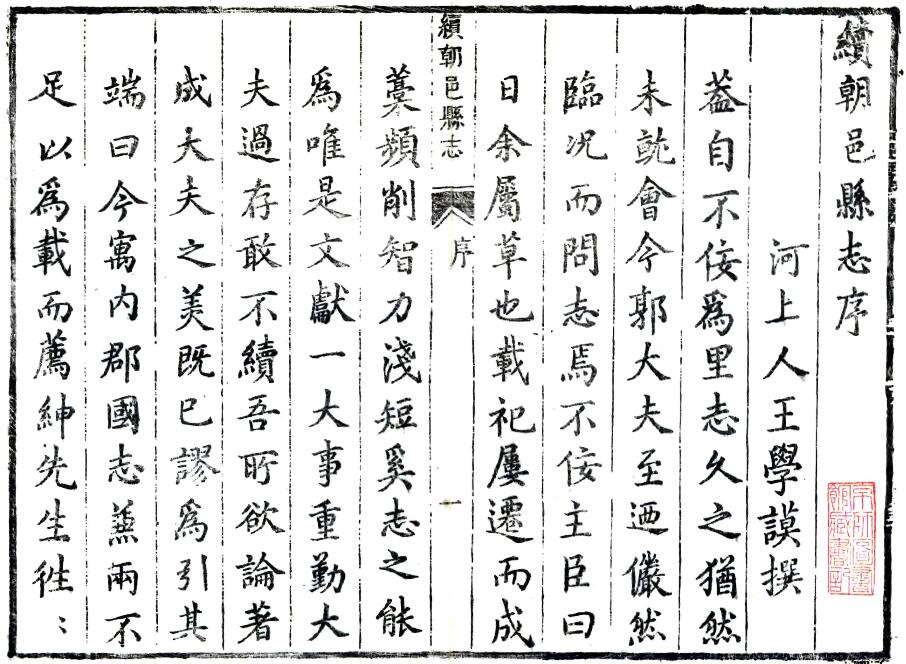 續朝邑縣志序
河上人王學謨撰
葢自不佞爲里志久之猶然
未就會今郭大夫至迺儼然
臨况而問志焉不佞主臣曰
日余屬草也載祀屢遷而成
續朝邑縣志 序 一
藁頻削智力淺短奚志之能
爲唯是文獻一大事重勤大
夫過存敢不續吾所欲論著
成大夫之美既已謬爲引其
端曰今寓内郡國志無兩不
足以爲載而薦紳先生徃〻